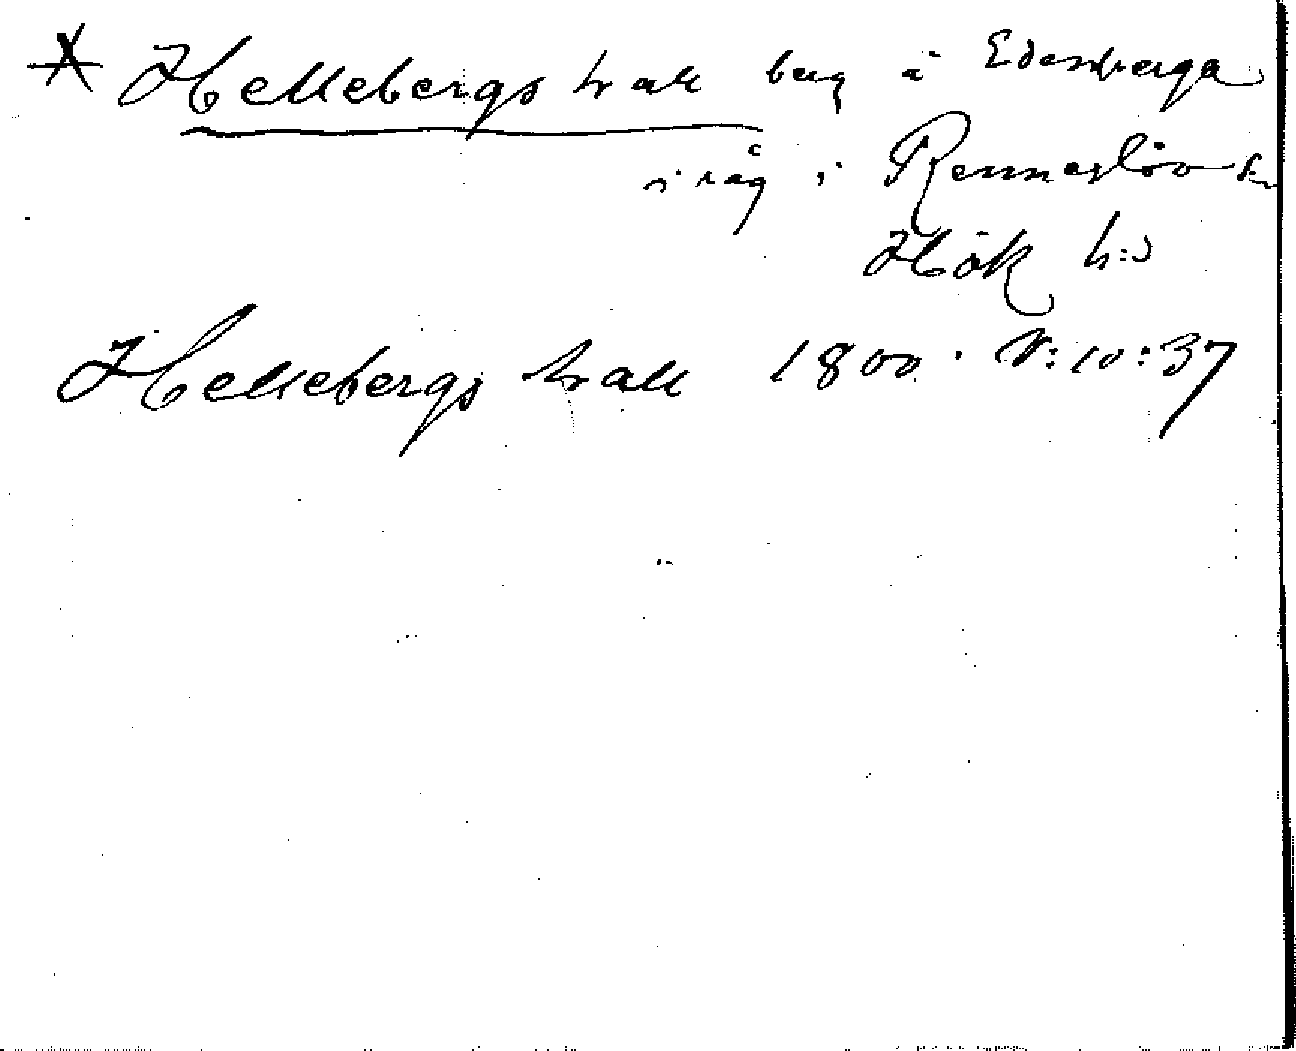 * Hellebergs hall berg å Edenberga
i råg i Rennerslöv sn
Hök h:d
Hellebergs hall 1800. N:10:37